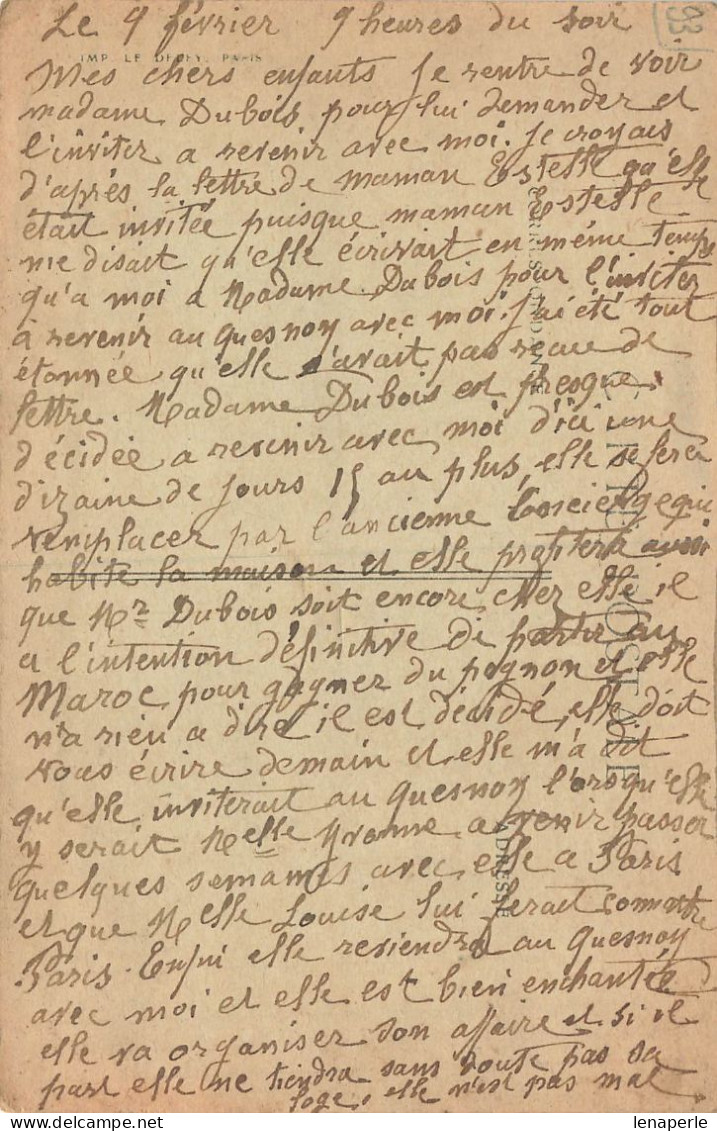 Le 9 février 9 heures du soir
93
IMP. LE DELEY, PARIS
Mes chers enfants Je rentre de voir
madame Dubois pour lui demander et
l'inviter a revenir avec moi. Je croyais
d'après la lettre de maman Estelle qu'elle
était invitée puisque maman Estelle
me disait qu'elle écrivait en même temps
qu'a moi a Madame Dubois pour l'inviter
a revenir au quesnoy avec moi. J'ai été tout
étonnée qu'elle n'avait pas reçue de
lettre. Madame Dubois est presque
décidée a revenir avec moi d'ici une
dizaine de jours 15 au plus, elle se fera
remplacer par l'ancienne qui
habite la maison et elle profitera aussi
que Mr Dubois soit encore chez elle il
a l'intention définitive de partir au
Maroc pour gagner du pognon et elle
n'a rien a dire il est décidé, elle doit
vous écrire demain et elle m'a dit
qu'elle inviterait au quesnoy l'orsqu'elle
y serait Melle Yvonne a venir passer
quelques semaines avec elle a Paris
et que Melle Louise lui ferait connaitre
Paris. Enfin elle reviendra au quesnoy
avec moi et elle est bien enchantée
elle va organiser son affaire et si il
part elle ne tiendra sans doute pas sa
loge, elle n'est pas mal
CORRESPONDANCE
CARTE POSTALE
ADRESSE
lenaperle